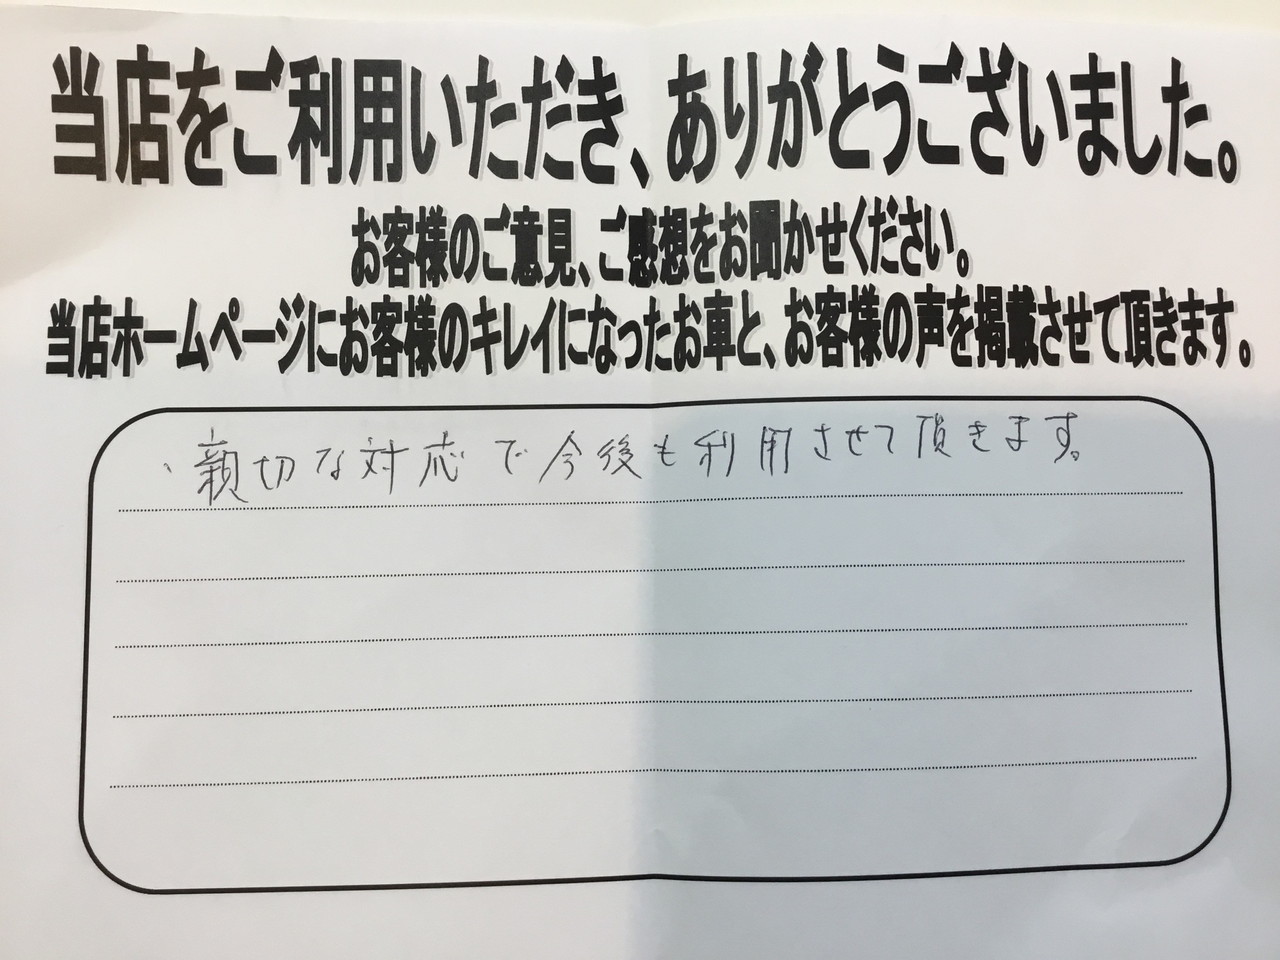 当店をご利用いただき、ありがとうございました。
お客様のご意見、ご感想をお聞かせください。
当店ホームページにお客様のキレイになったお車と、お客様の声を掲載させて頂きます。
、親切な対応で今後も利用させて頂きます。